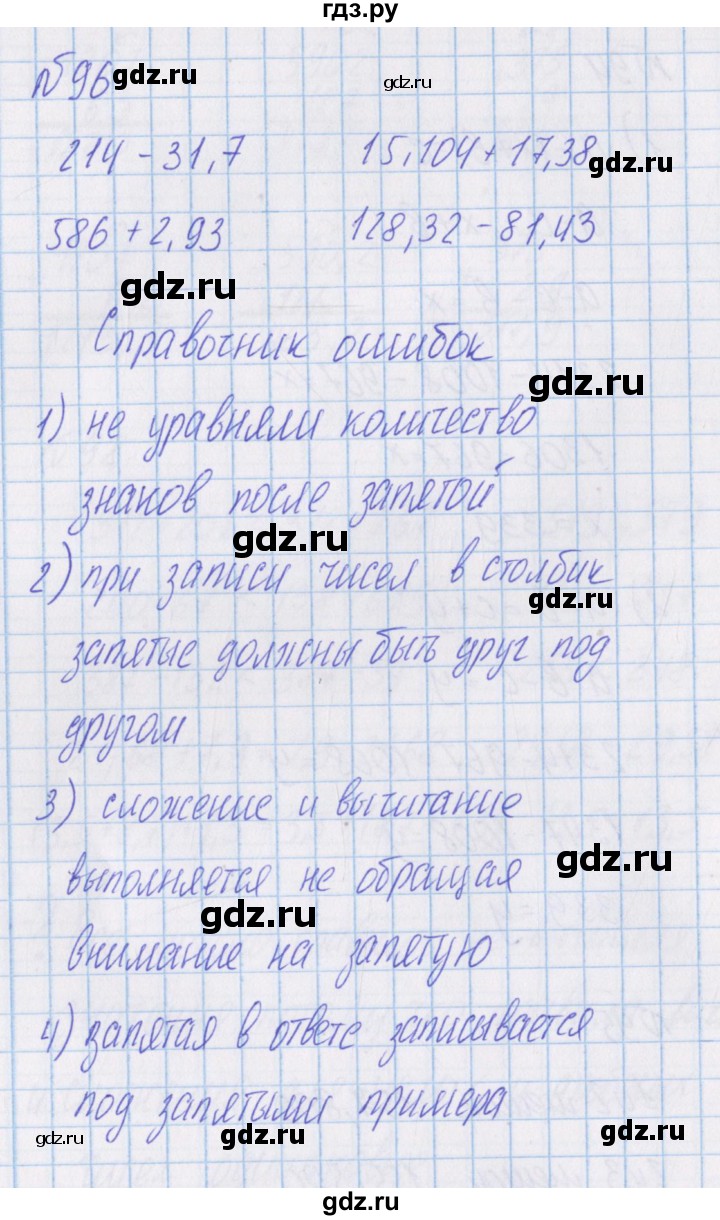 гдз.ру
№96 gdz.ru gdz.ru
214 - 31,7 15,104 + 17,38 gdz.ru
586 + 2,93 128,32 - 81,43
gdz.ru
Справочник ошибок
gdz.ru
1) не уравняли количество
знаков после запятой
gdz.ru
2) при записи чисел в столбик
gdz.ru
запятые должны быть друг под
другом
3) сложение и вычитание
gdz.ru
выполняется не обращая
gdz.ru
внимание на запятую
4) запятая в ответе записывается
под запятыми примера
gdz.ru gdz.ru gdz.ru
gdz.ru